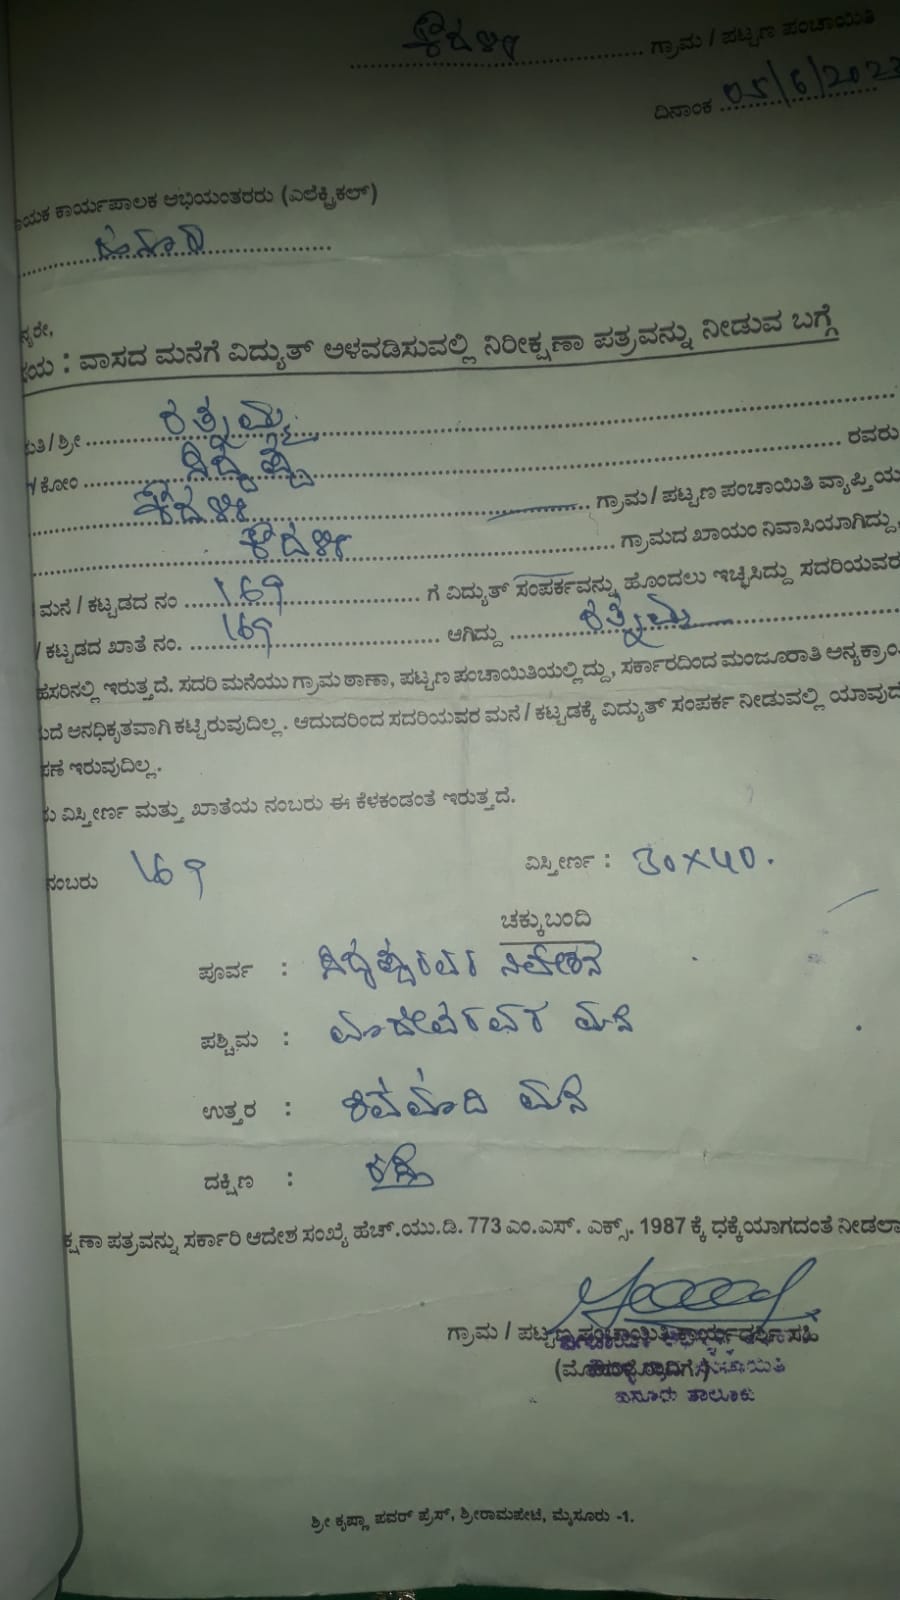 ಗ್ರಾಮ / ಪಟ್ಟಣ ಪಂಚಾಯಿತಿ
ದಿನಾಂಕ 05/6/202
ಕಾರ್ಯಪಾಲಕ ಅಭಿಯಂತರರು (ಎಲೆಕ್ಟ್ರಿಕಲ್)
: ವಾಸದ ಮನೆಗೆ ವಿದ್ಯುತ್ ಅಳವಡಿಸುವಲ್ಲಿ ನಿರೀಕ್ಷಣಾ ಪತ್ರವನ್ನು ನೀಡುವ ಬಗ್ಗೆ
/ ಶ್ರೀ ರತ್ನಮ್ಮ
/ ಕೋಂ ರವರು
ಗ್ರಾಮ / ಪಟ್ಟಣ ಪಂಚಾಯಿತಿ ವ್ಯಾಪ್ತಿಯ
ಗ್ರಾಮದ ಖಾಯಂ ನಿವಾಸಿಯಾಗಿದ್ದು,
ಮನೆ / ಕಟ್ಟಡದ ನಂ 169 ಗೆ ವಿದ್ಯುತ್ ಸಂಪರ್ಕವನ್ನು ಹೊಂದಲು ಇಚ್ಛಿಸಿದ್ದು ಸದರಿಯವರ
/ ಕಟ್ಟಡದ ಖಾತೆ ನಂ. 169 ಆಗಿದ್ದು ರತ್ನಮ್ಮ
ಹೆಸರಿನಲ್ಲಿ ಇರುತ್ತದೆ. ಸದರಿ ಮನೆಯು ಗ್ರಾಮ ಠಾಣಾ, ಪಟ್ಟಣ ಪಂಚಾಯಿತಿಯಲ್ಲಿದ್ದು, ಸರ್ಕಾರದಿಂದ ಮಂಜೂರಾತಿ ಅನ್ಯಕ್ರಾಂ
ಅನಧಿಕೃತವಾಗಿ ಕಟ್ಟಿರುವುದಿಲ್ಲ. ಆದುದರಿಂದ ಸದರಿಯವರ ಮನೆ / ಕಟ್ಟಡಕ್ಕೆ ವಿದ್ಯುತ್ ಸಂಪರ್ಕ ನೀಡುವಲ್ಲಿ ಯಾವುದ
ಇರುವುದಿಲ್ಲ.
ವಿಸ್ತೀರ್ಣ ಮತ್ತು ಖಾತೆಯ ನಂಬರು ಈ ಕೆಳಕಂಡಂತೆ ಇರುತ್ತದೆ.
ನಂಬರು 169 ವಿಸ್ತೀರ್ಣ : 30x40.
ಚಕ್ಕುಬಂದಿ
ಪೂರ್ವ : ನಿವೇಶನ
ಪಶ್ಚಿಮ : ಮನೆ
ಉತ್ತರ : ಮನೆ
ದಕ್ಷಿಣ : ರಸ್ತೆ
ಪತ್ರವನ್ನು ಸರ್ಕಾರಿ ಆದೇಶ ಸಂಖ್ಯೆ ಹೆಚ್.ಯು.ಡಿ. 773 ಎಂ.ಎಸ್. ಎಕ್ಸ್. 1987 ಕ್ಕೆ ಧಕ್ಕೆಯಾಗದಂತೆ ನೀಡಲಾ
ಗ್ರಾಮ / ಪಟ್ಟಣ ಪಂಚಾಯಿತಿ ಕಾರ್ಯದರ್ಶಿ ಸಹಿ
ತಾಲೂಕು
ಶ್ರೀ ಕೃಷ್ಣಾ ಪವರ್ ಪ್ರೆಸ್, ಶ್ರೀರಾಮಪೇಟೆ, ಮೈಸೂರು -1.